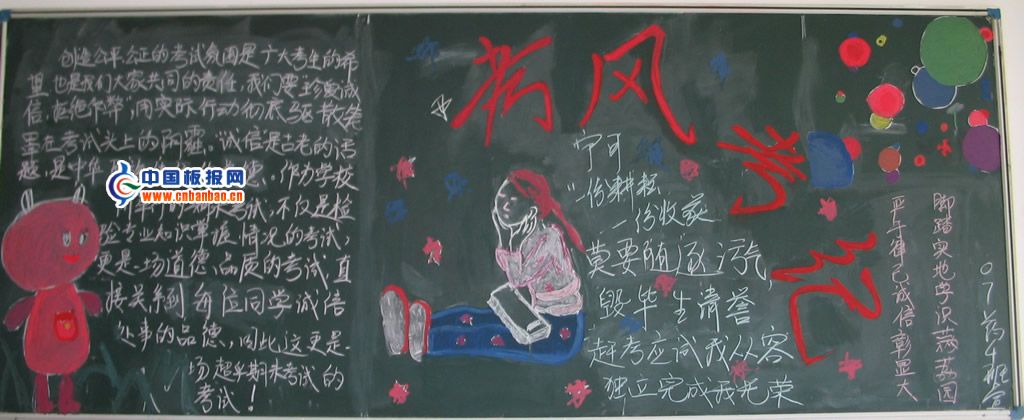 创造公平公正的考试氛围是广大考生的希
望也是我们大家共同的责任,我们要"珍重诚
信,拒绝作弊"用实际行动彻底驱散笼
罩在考试头上的阴霾。诚信是古老的话
题,是中华
德。作为学校
考试,不仅是检
验专业知识掌握情况的考试,
更是一场道德、品质的考试,直
接关系到每位同学诚信
处事的品德,因此这更是一
场超乎期末考试的
考试!
中国板报网
www.cnbanbao.cn
考风考纪
宁可
一份耕耘
一份收获
莫要随逐污气
毁毕生清誉
赴考应试我从容
独立完成我光荣
脚踏实地学识
园
严于律己诚信彰显大
07
班宣